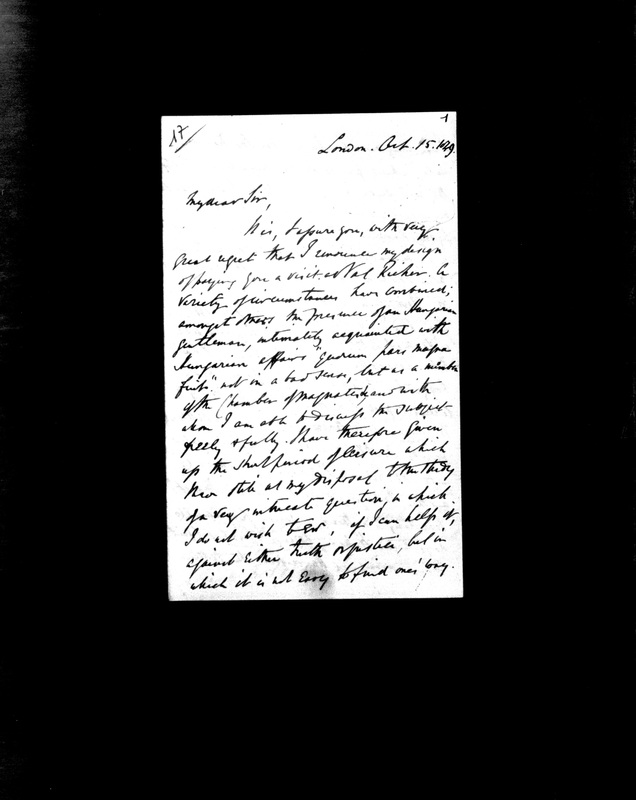 17
1
London. Oct. 15. 1849.
My dear Sir,
It is, I assure you, with very
great regret that I renounce my design
of paying you a visit at Val Richer. A
variety of circumstances have combined;
amongst others the presence of an Hungarian
gentleman, intimately acquainted with
Hungarian affairs "quorum pars magna
fuit" not in a bad sense, but as a member
of the Chamber of Magnates; and with
whom I am able to discuss the subject
freely & fully. I have therefore given
up the short period of leisure which
now still at my disposal to the study
of a very intricate question, in which
I do not wish to err, if I can help it,
against either truth or justice, but in
which it is not easy to find one's way.